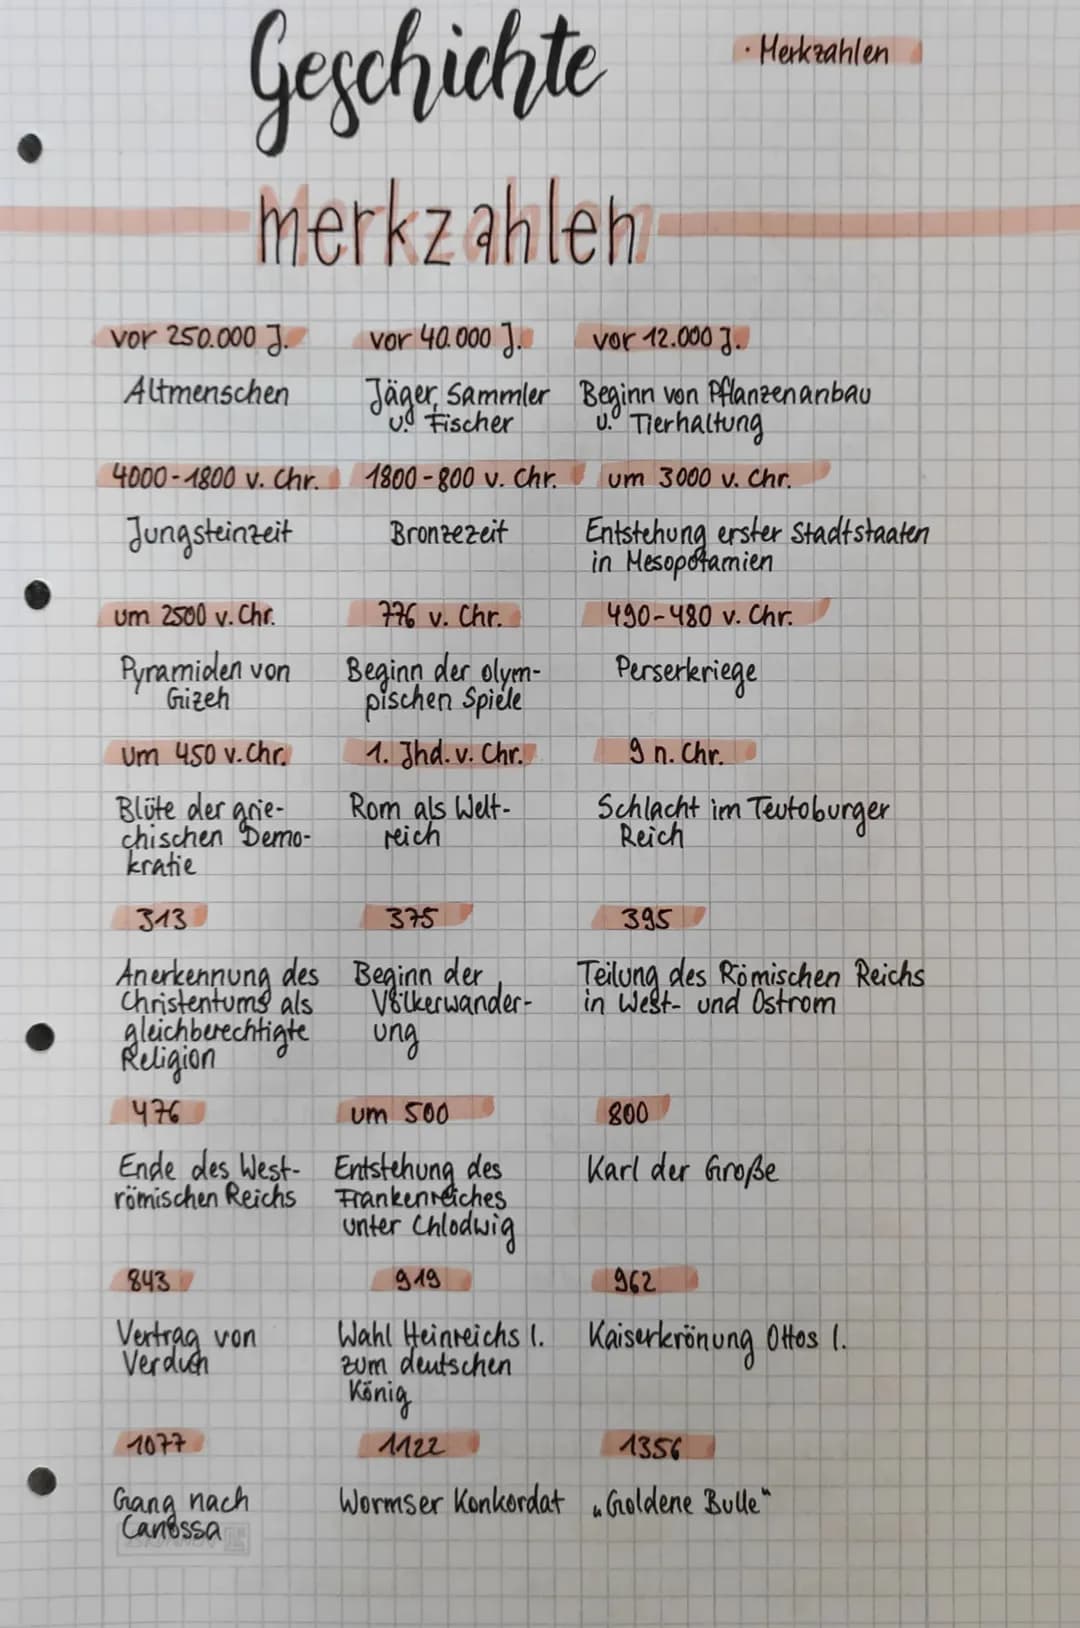 Geschichte
· Merkzahlen
merkzahlen
vor 250.000 J.
Altmenschen
vor 40.000 J.
Jäger, Sammler
u. Fischer
vor 12.000 J.
Beginn von Pflanzenanbau
u. Tierhaltung
4000-1800 v. Chr.
Jungsteinzeit
1800-800 v. Chr.
Bronzezeit
um 3000 v. Chr.
Entstehung erster Stadtstaaten
in Mesopotamien
um 2500 v. Chr.
Pyramiden von
Gizeh
776 v. Chr.
Beginn der olym-
pischen Spiele
490-480 v. Chr.
Perserkriege
um 450 v. Chr.
Blüte der grie-
chischen Demo-
kratie
1. Jhd. v. Chr.
Rom als Welt-
reich
9 n. Chr.
Schlacht im Teutoburger
Reich
313
Anerkennung des
Christentums als
gleichberechtigte
Religion
375
Beginn der
Völkerwander-
ung
395
Teilung des Römischen Reichs
in West- und Ostrom
476
Ende des West-
römischen Reichs
um 500
Entstehung des
Frankenreiches
unter Chlodwig
800
Karl der Große
843
Vertrag von
Verdun
919
Wahl Heinreichs I.
zum deutschen
König
962
Kaiserkrönung Ottos I.
1077
Gang nach
Canossa
1122
Wormser Konkordat
1356
„Goldene Bulle“